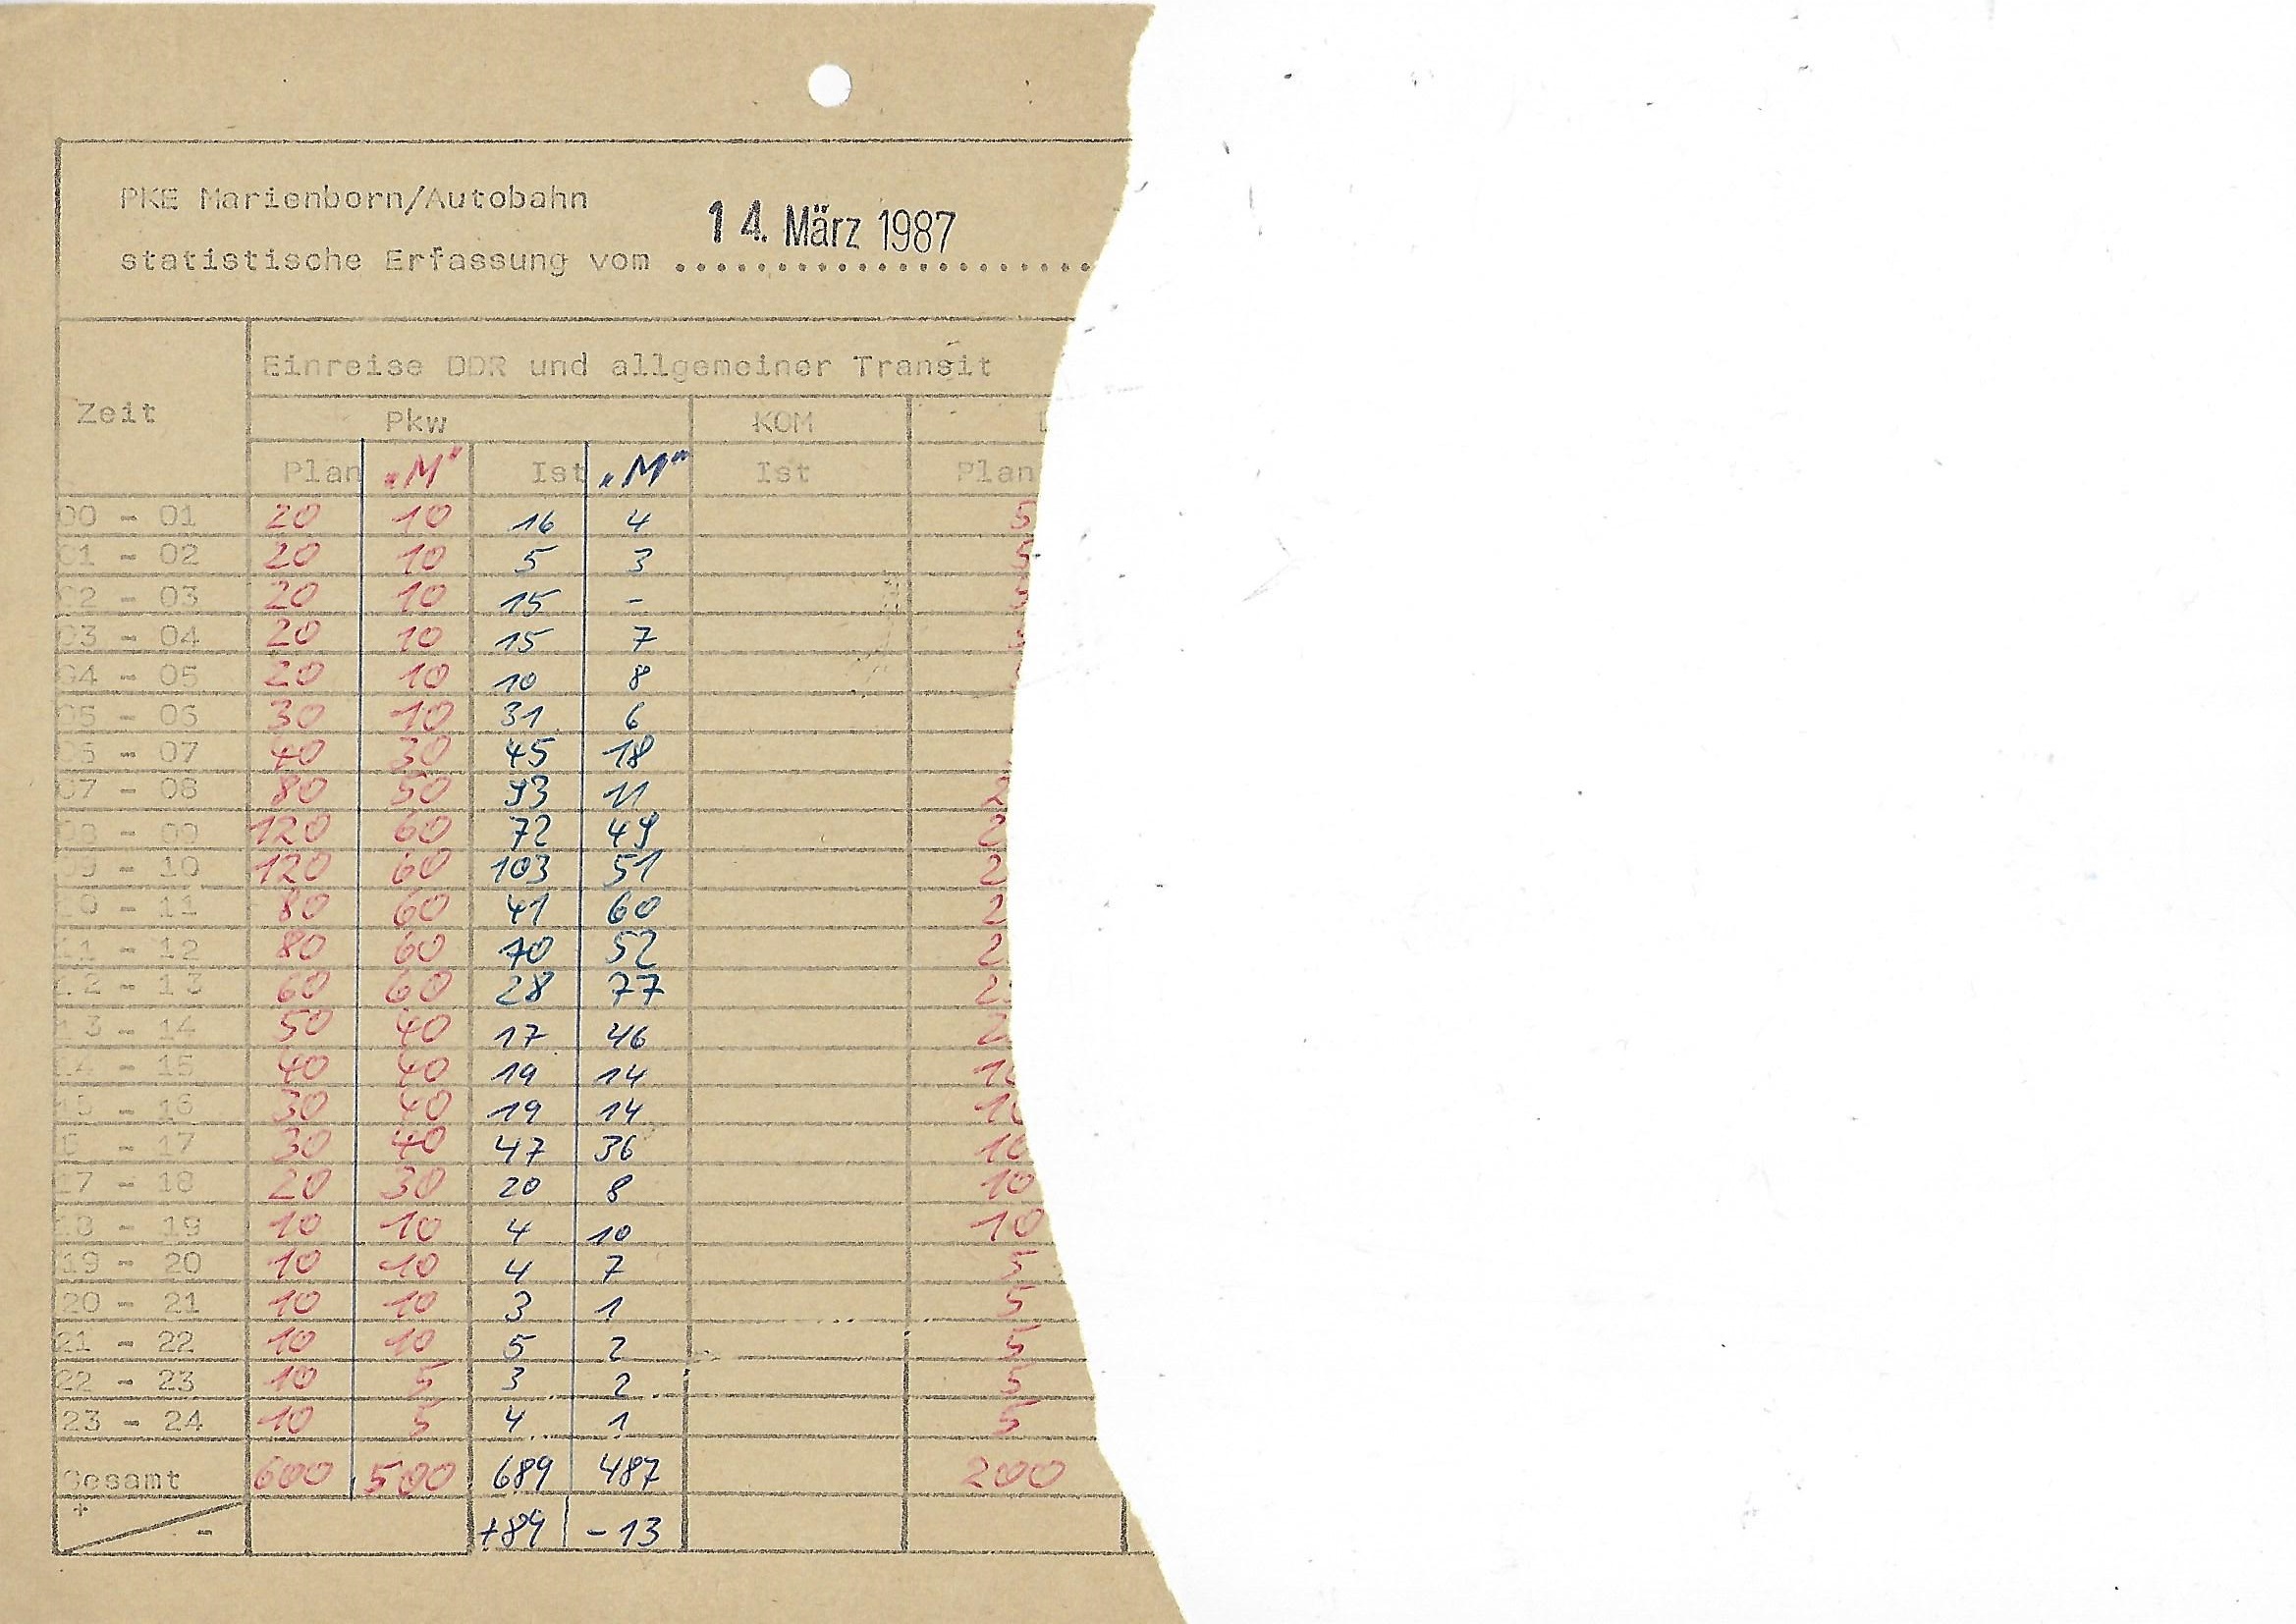 PKE Marienborn/Autobahn
14. März 1987
statistische Erfassung vom .....................
Einreise DDR und allgemeiner Transit
Zeit
Pkw KOM
Plan „M“ Ist „M“ Ist Plan
00 - 01 20 10 16 4 5
01 - 02 20 10 5 3 5
02 - 03 20 10 15 - 5
03 - 04 20 10 15 7
04 - 05 20 10 10 8
05 - 06 30 10 31 6
06 - 07 40 30 45 18
07 - 08 80 50 93 11 2
08 - 09 120 60 72 49 2
09 - 10 120 60 103 51 2
10 - 11 80 60 41 60 2
11 - 12 80 60 70 52 2
12 - 13 60 60 28 77 2
13 - 14 50 40 17 46 2
14 - 15 40 40 19 14 10
15 - 16 30 40 19 14 10
16 - 17 30 40 47 36 10
17 - 18 20 30 20 8 10
18 - 19 10 10 4 10 10
19 - 20 10 10 4 7 5
20 - 21 10 10 3 1 5
21 - 22 10 10 5 2 5
22 - 23 10 5 3 2 5
23 - 24 10 5 4 1 5
Gesamt 600 500 689 487 200
+ - +89 -13